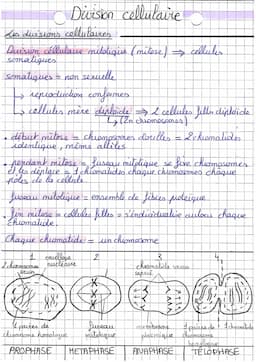 Division cellulaire
Les divisions cellulaires
Division cellulaire mitotique (mitose) ⇒ cellules
somatiques
somatiques = non sexuelle
↳ reproduction conformes
↳ cellules mère diploïde ⇒ 2 cellules filles diploïde
↳ (2n chromosomes)
• début mitose = chromosomes doubles = 2 chromatides
identique, mêmes allèles
• pendant mitose = fuseau mitotique se fixe chromosomes
et les déplace = 1 chromatides chaque chromosomes chaque
pôles de la cellule.
fuseau mitotique = ensemble de fibres protéiques
• fin mitose = cellules filles = s'individualise autour chaque
chromatide.
Chaque chromatide = un chromosome
1 2 3 4
2 chromosomes
enveloppe
nucléaire
chromatide
fuseau
mitotique
membrane
plasmique
PROPHASE METAPHASE ANAPHASE TELOPHASE